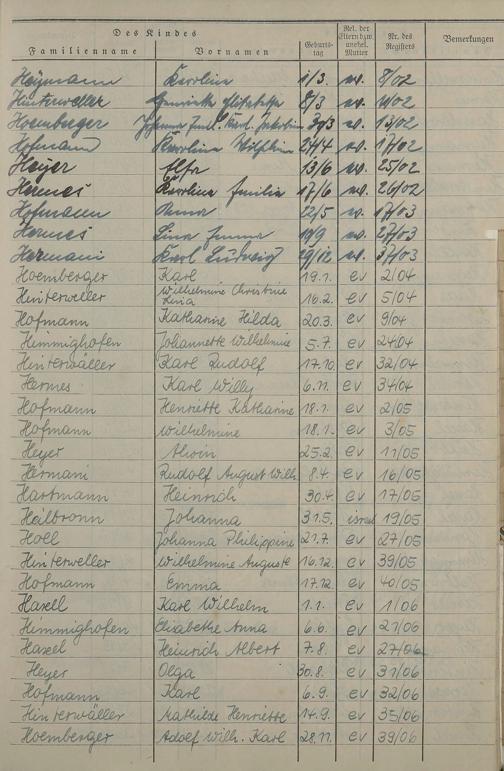 Des Kindes
Familienname Vornamen Geburts-tag Rel. der Eltern bzw. unehel. Mutter Nr. des Registers Bemerkungen
Heymann Karoline 1/3. ev. 8/02
Hinterweller Elisabetha 8/3 ev. 11/02
Hoemberger Karl ev. 13/02
Hofmann Karolina 24/4 ev. 17/02
Heyer Elsa 13/6 ev. 25/02
Hermes Karolina Emilie 17/6 ev. 26/02
Hofmann Anna 22/5 ev. 17/03
Hermes Lina Emma 10/9 ev. 27/03
Hermani Karl Ludwig 29/12 ev. 37/03
Hoemberger Karl 19.1. ev 2/04
Hinterweller Wilhelmine Christine Lina 16.2. ev 5/04
Hofmann Katharine Hilda 20.3. ev 9/04
Himmighofen Johannette Wilhelmine 5.7. ev 24/04
Hinterwäller Karl Rudolf 17.10. ev 32/04
Hermes Karl Willy 6.11. ev 34/04
Hofmann Henriette Katharine 18.1. ev 2/05
Hofmann Wilhelmine 18.1. ev 3/05
Heyer Alwin 25.2. ev 11/05
Hermani Rudolf August Wilh. 8.4. ev 16/05
Hartmann Heinrich 30.4. ev 17/05
Heilbronn Johanna 31.5. israel 19/05
Hoell Johanna Philippine 21.7. ev 27/05
Hinterweller Wilhelmine Auguste 16.12. ev 39/05
Hofmann Emma 17.12. ev 40/05
Haxell Karl Wilhelm 1.1. ev 1/06
Himmighofen Elisabethe Anna 6.6. ev 21/06
Haxel Heinrich Albert 7.8. ev 27/06
Heyer Olga 30.8. ev 31/06
Hofmann Karl 6.9. ev 32/06
Hinterwäller Mathilde Henriette 14.9. ev 35/06
Hoemberger Adolf Wilh. Karl 28.11. ev 39/06